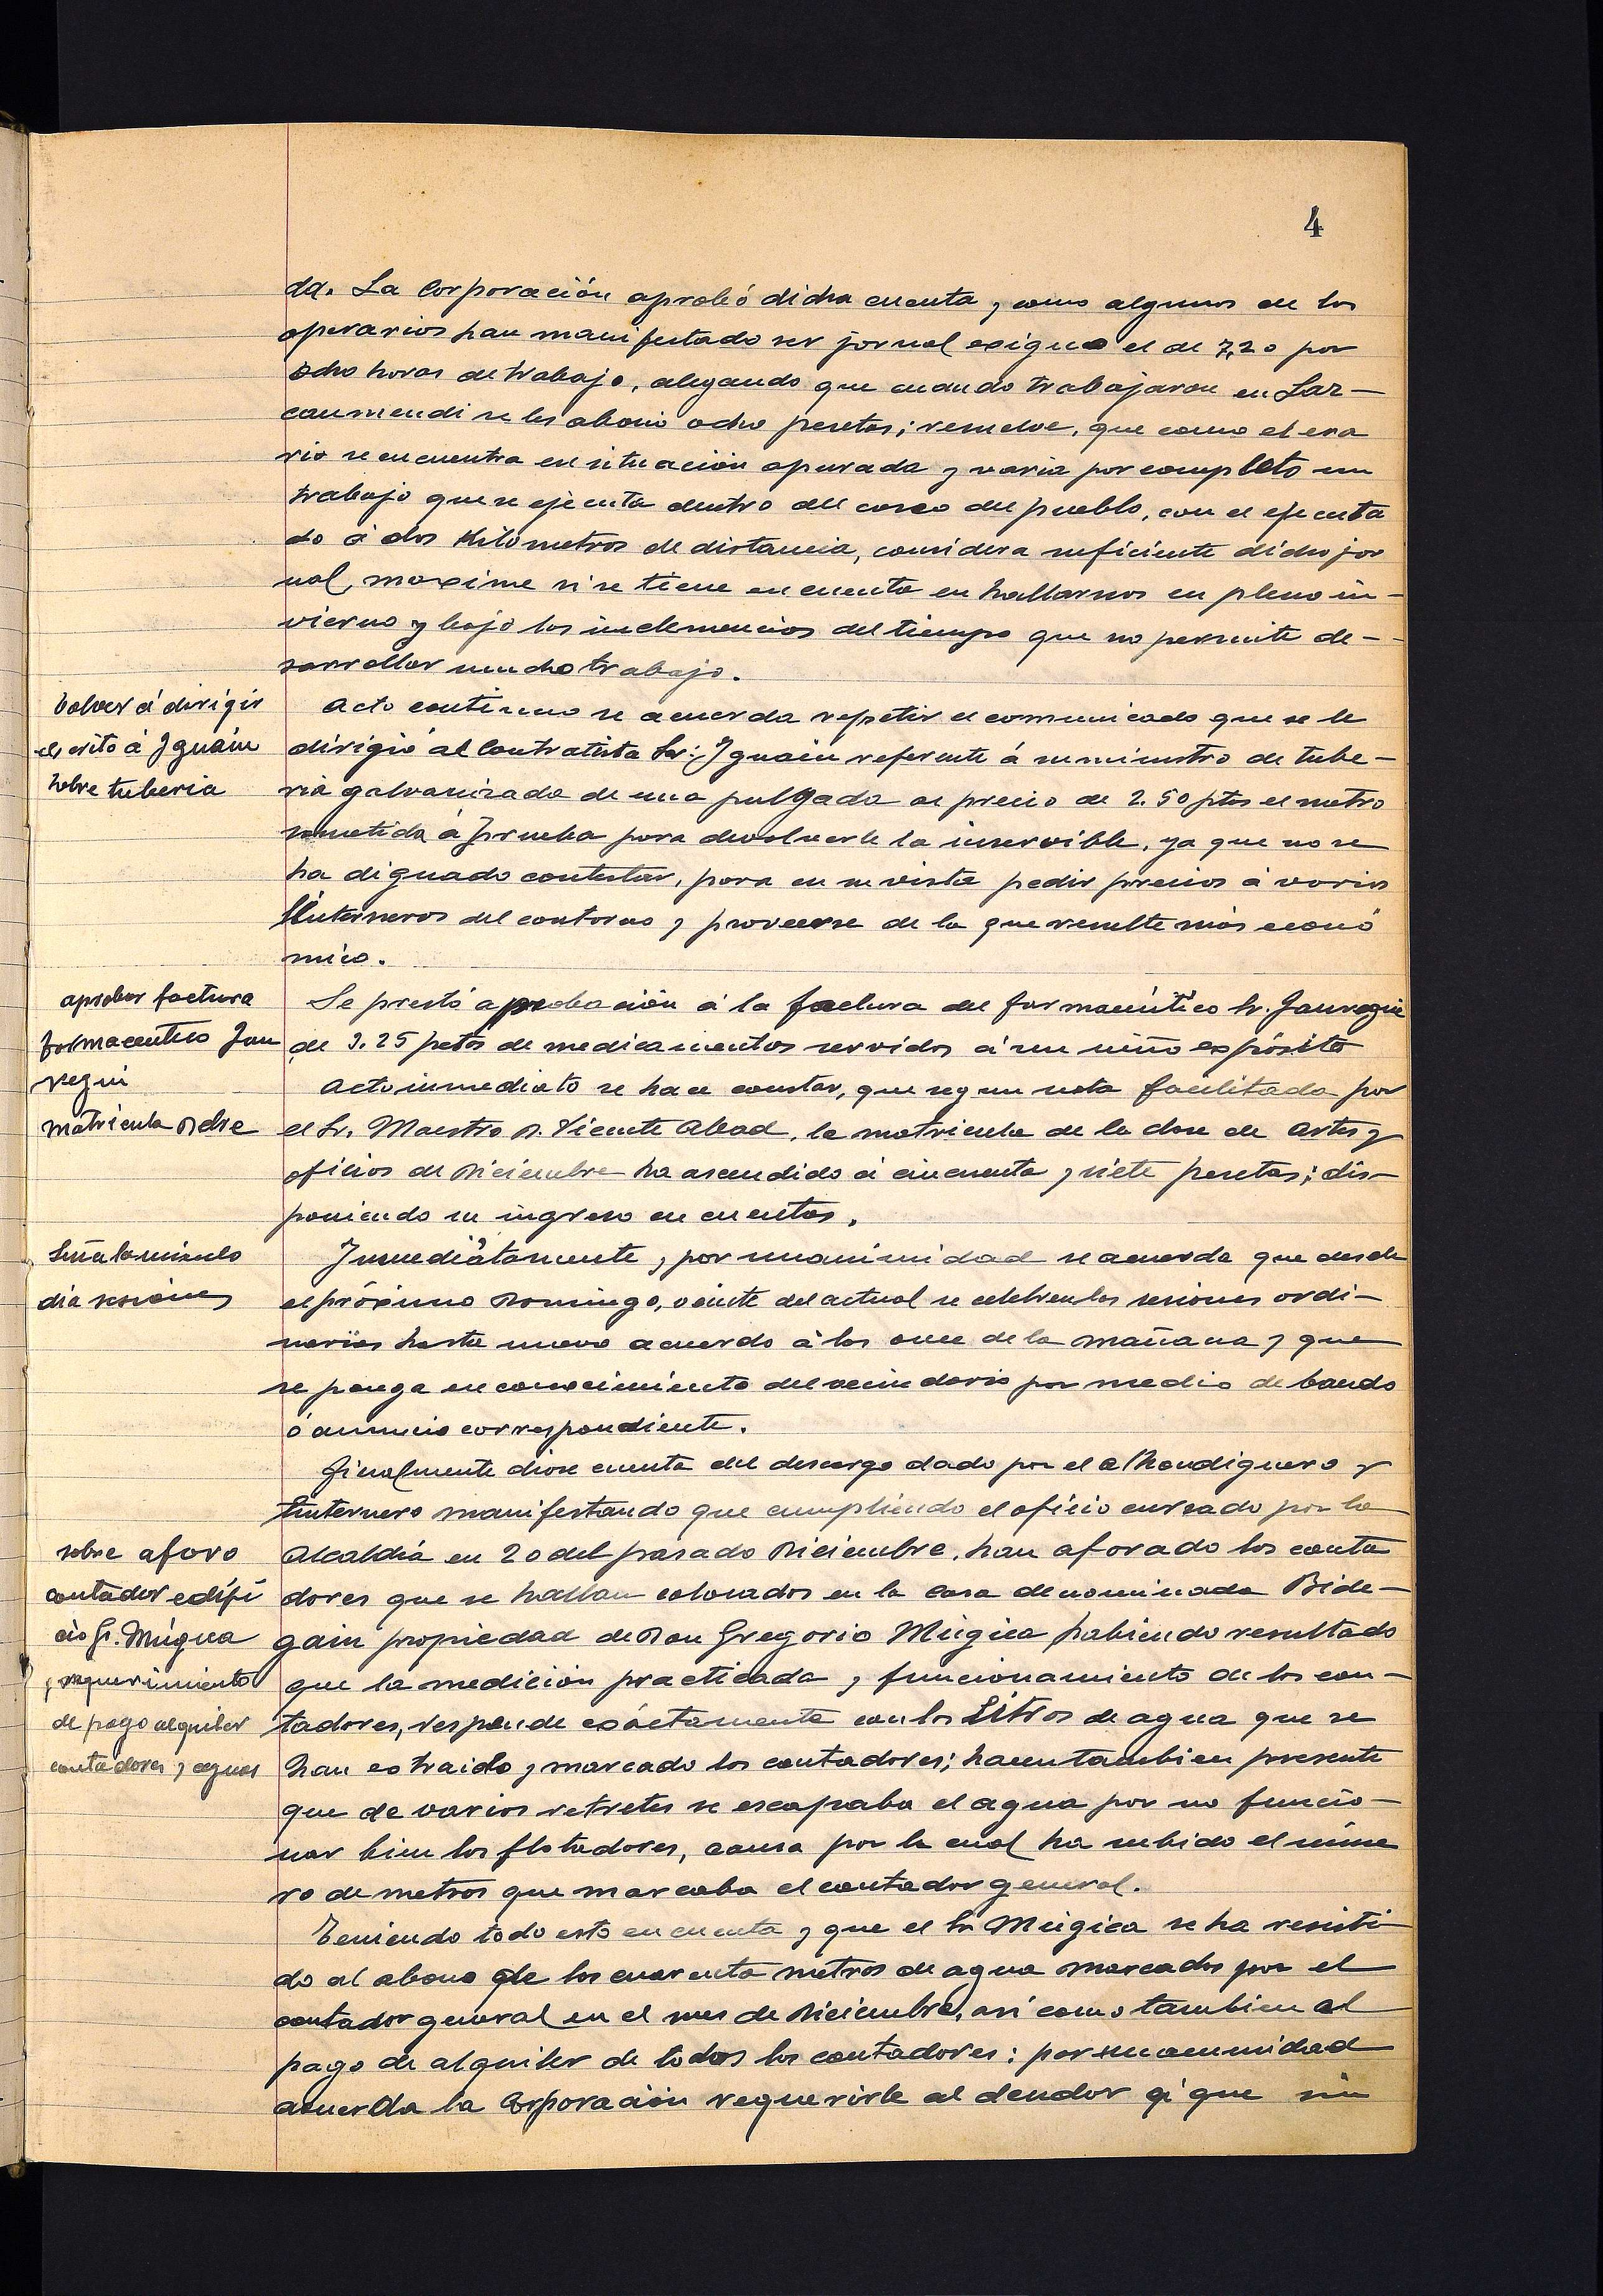 4
da. La Corporación aprobó dicha cuenta y como algunos de los
operarios han manifestado ser jornal exiguo el de 7,20 por
ocho horas de trabajo, alegando que cuando trabajaron en Laz-
caumendi se les abonó ocho pesetas; resuelve, que como el era
rio se encuentra en situación apurada y varia por completo un
trabajo que se ejecuta dentro del casco del pueblo, con el ejecuta
do á dos Kilómetros de distancia, considera suficiente dicho jor
nal, maxime si se tiene en cuenta en hallarnos en pleno in-
vierno y bajo las inclemencias del tiempo que no permite de-
sarrollar mucho trabajo.
Volver á dirigir
escrito á Iguain
sobre tuberia
Acto continuo se acuerda repetir el comunicado que se le
dirigió al Contratista Sr: Iguain referente á suministro de tube-
ria galvanizada de una pulgada al precio de 2.50 ptas el metro
sometida á prueba para devolverle la inservible, ya que no se
ha dignado contestar, para en su vista pedir precios á varios
linterneros del contorno y proveerse de la que resulte más econó
mico.
aprobar factura
farmaceutico Jau
regui
Se prestó aprobación á la factura del farmacéutico Sr. Jauregui
de 3.25 petas de medicamentos servidos á un niño expósito
matricula Dbre
Acto inmediato se hace constar, que segun nota facilitada por
el Sr. Maestro D. Vicente Abad, la matricula de la clase de artes y
oficios de Diciembre ha ascendido á cincuenta y siete pesetas; dis-
poniendo su ingreso en cuentas.
Señalamiento
dia sesiones
Inmediatamente y por unanimidad se acuerda que desde
el próximo Domingo, veinte del actual se celebren las sesiones ordi-
narias hasta nuevo acuerdo á las once de la mañana y que
se ponga en conocimiento del vecindario por medio de bando
ó anuncio correspondiente.
Finalmente diose cuenta del descargo dado por el alhondiguero y
linternero manifestando que cumpliendo el oficio cursado por la
sobre aforo
contador edifi
cio G. Múgica
y requerimiento
de pago alquiler
contadores y aguas
Alcaldía en 20 del pasado Diciembre, han aforado los conta
dores que se hallan colocados en la casa denominada Bide-
gain propiedad de Don Gregorio Múgica habiendo resultado
que la medición practicada y funcionamiento de los con-
tadores, responde exáctamente con los Litros de agua que se
han extraido y marcado los contadores; hacen tambien presente
que de varios retretes se escapaba el agua por no funcio-
nar bien los flotadores, causa por la cual ha subido el núme
ro de metros que marcaba el contador general.
Teniendo todo esto en cuenta y que el Sr Múgica se ha resisti
do al abono de los cuarenta metros de agua marcados por el
contador general en el mes de Diciembre, asi como tambien al
pago de alquiler de todos los contadores: por unanimidad
acuerda la Corporación requerirle al deudor á que sin